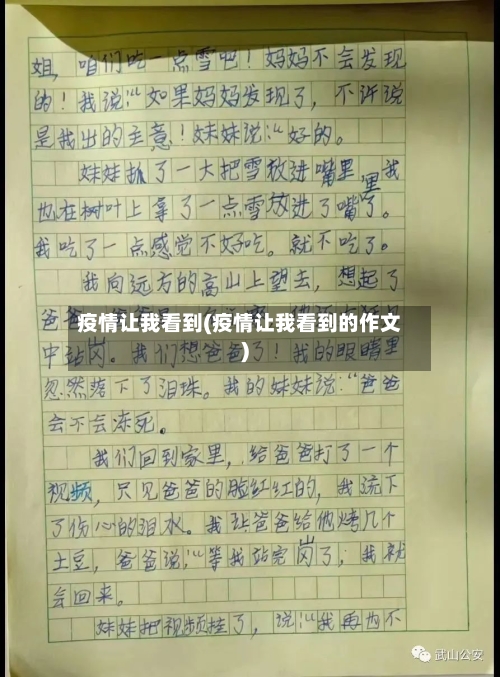 姐，咱们吃一点雪吧！妈妈不会发现
的！我说：“如果妈妈发现了，不许说
是我出的主意！妹妹说：“好的。
妹妹抓了一大把雪放进嘴里，我
也在树叶上拿了一点雪放进了嘴里。
我吃了一点感觉不好吃。就不吃了。
我向远方的高山上望去，想起了
爸爸
疫情让我看到(疫情让我看到的作文
)
中站岗。我们想爸爸了！我的眼睛里
忽然落下了泪珠。我的妹妹说：“爸爸
会不会冻死。
我们回到家里，给爸爸打了一个
视频，只见爸爸的脸红红的，我流下
了伤心的泪水。我让爸爸给他烤几个
土豆，爸爸说：“等我站完岗了，我就
会回来。
妹妹把视频挂了，说：“我再也不
武山公安